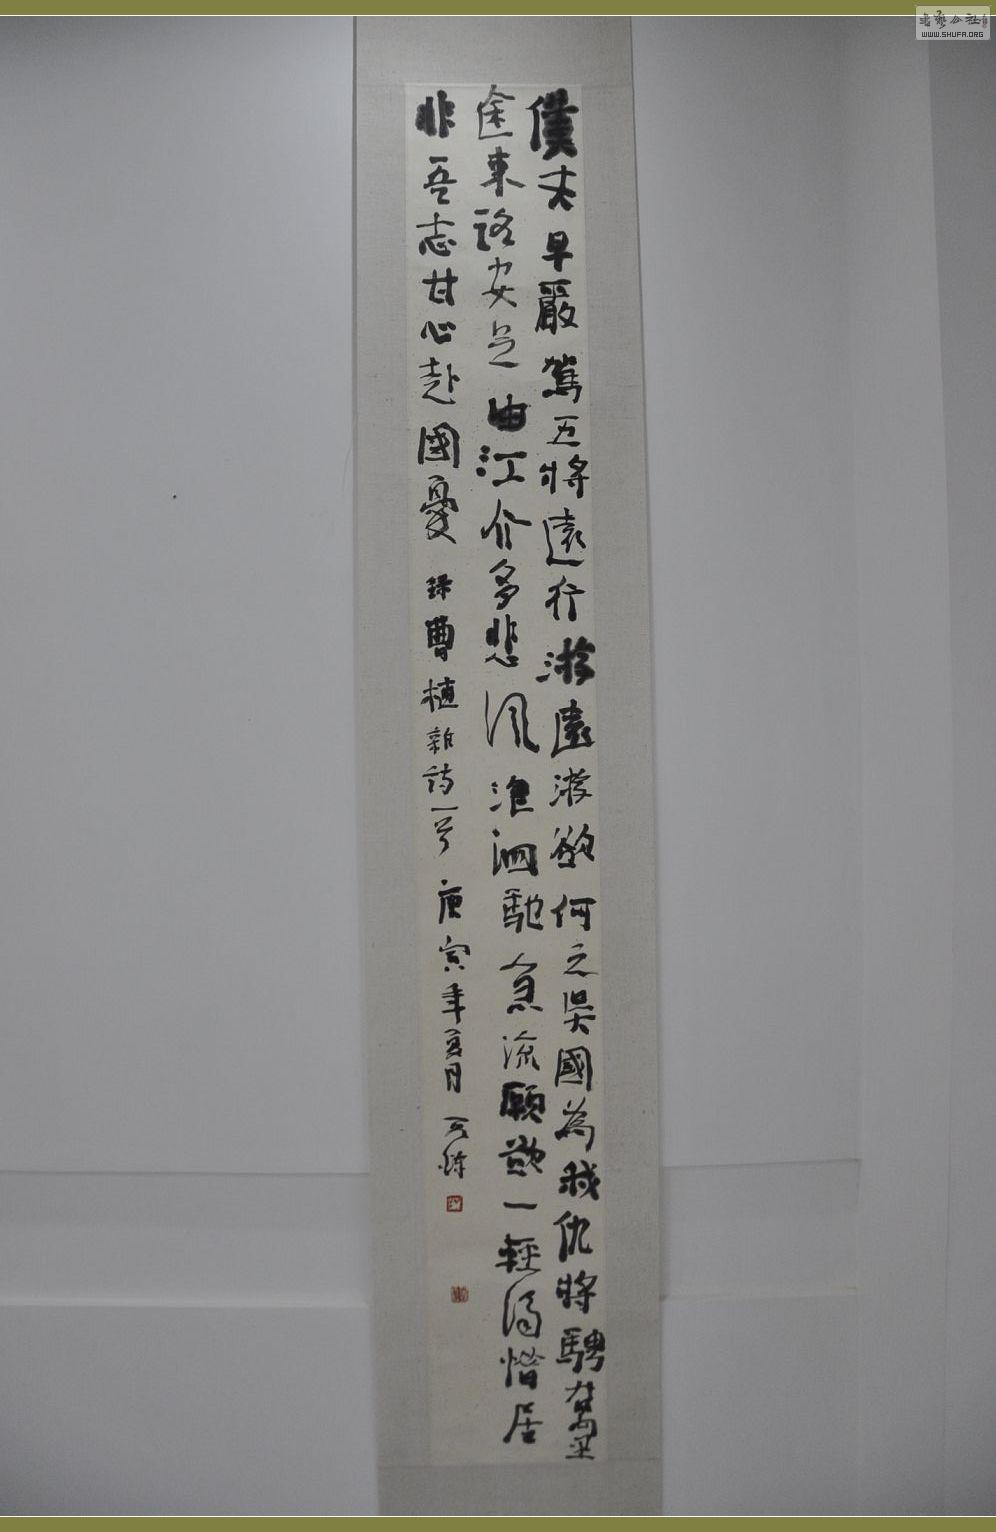 書藝公社
WWW.SHUFA.ORG
僕夫早嚴駕五將遠行游遠游欲何之吳國為我仇將騁萬里
途東路安足由江介多悲風淮泗馳急流願欲一輕濟惜居
非吾志甘心赴國憂 錄曹植雜詩一首 庚寅年夏月